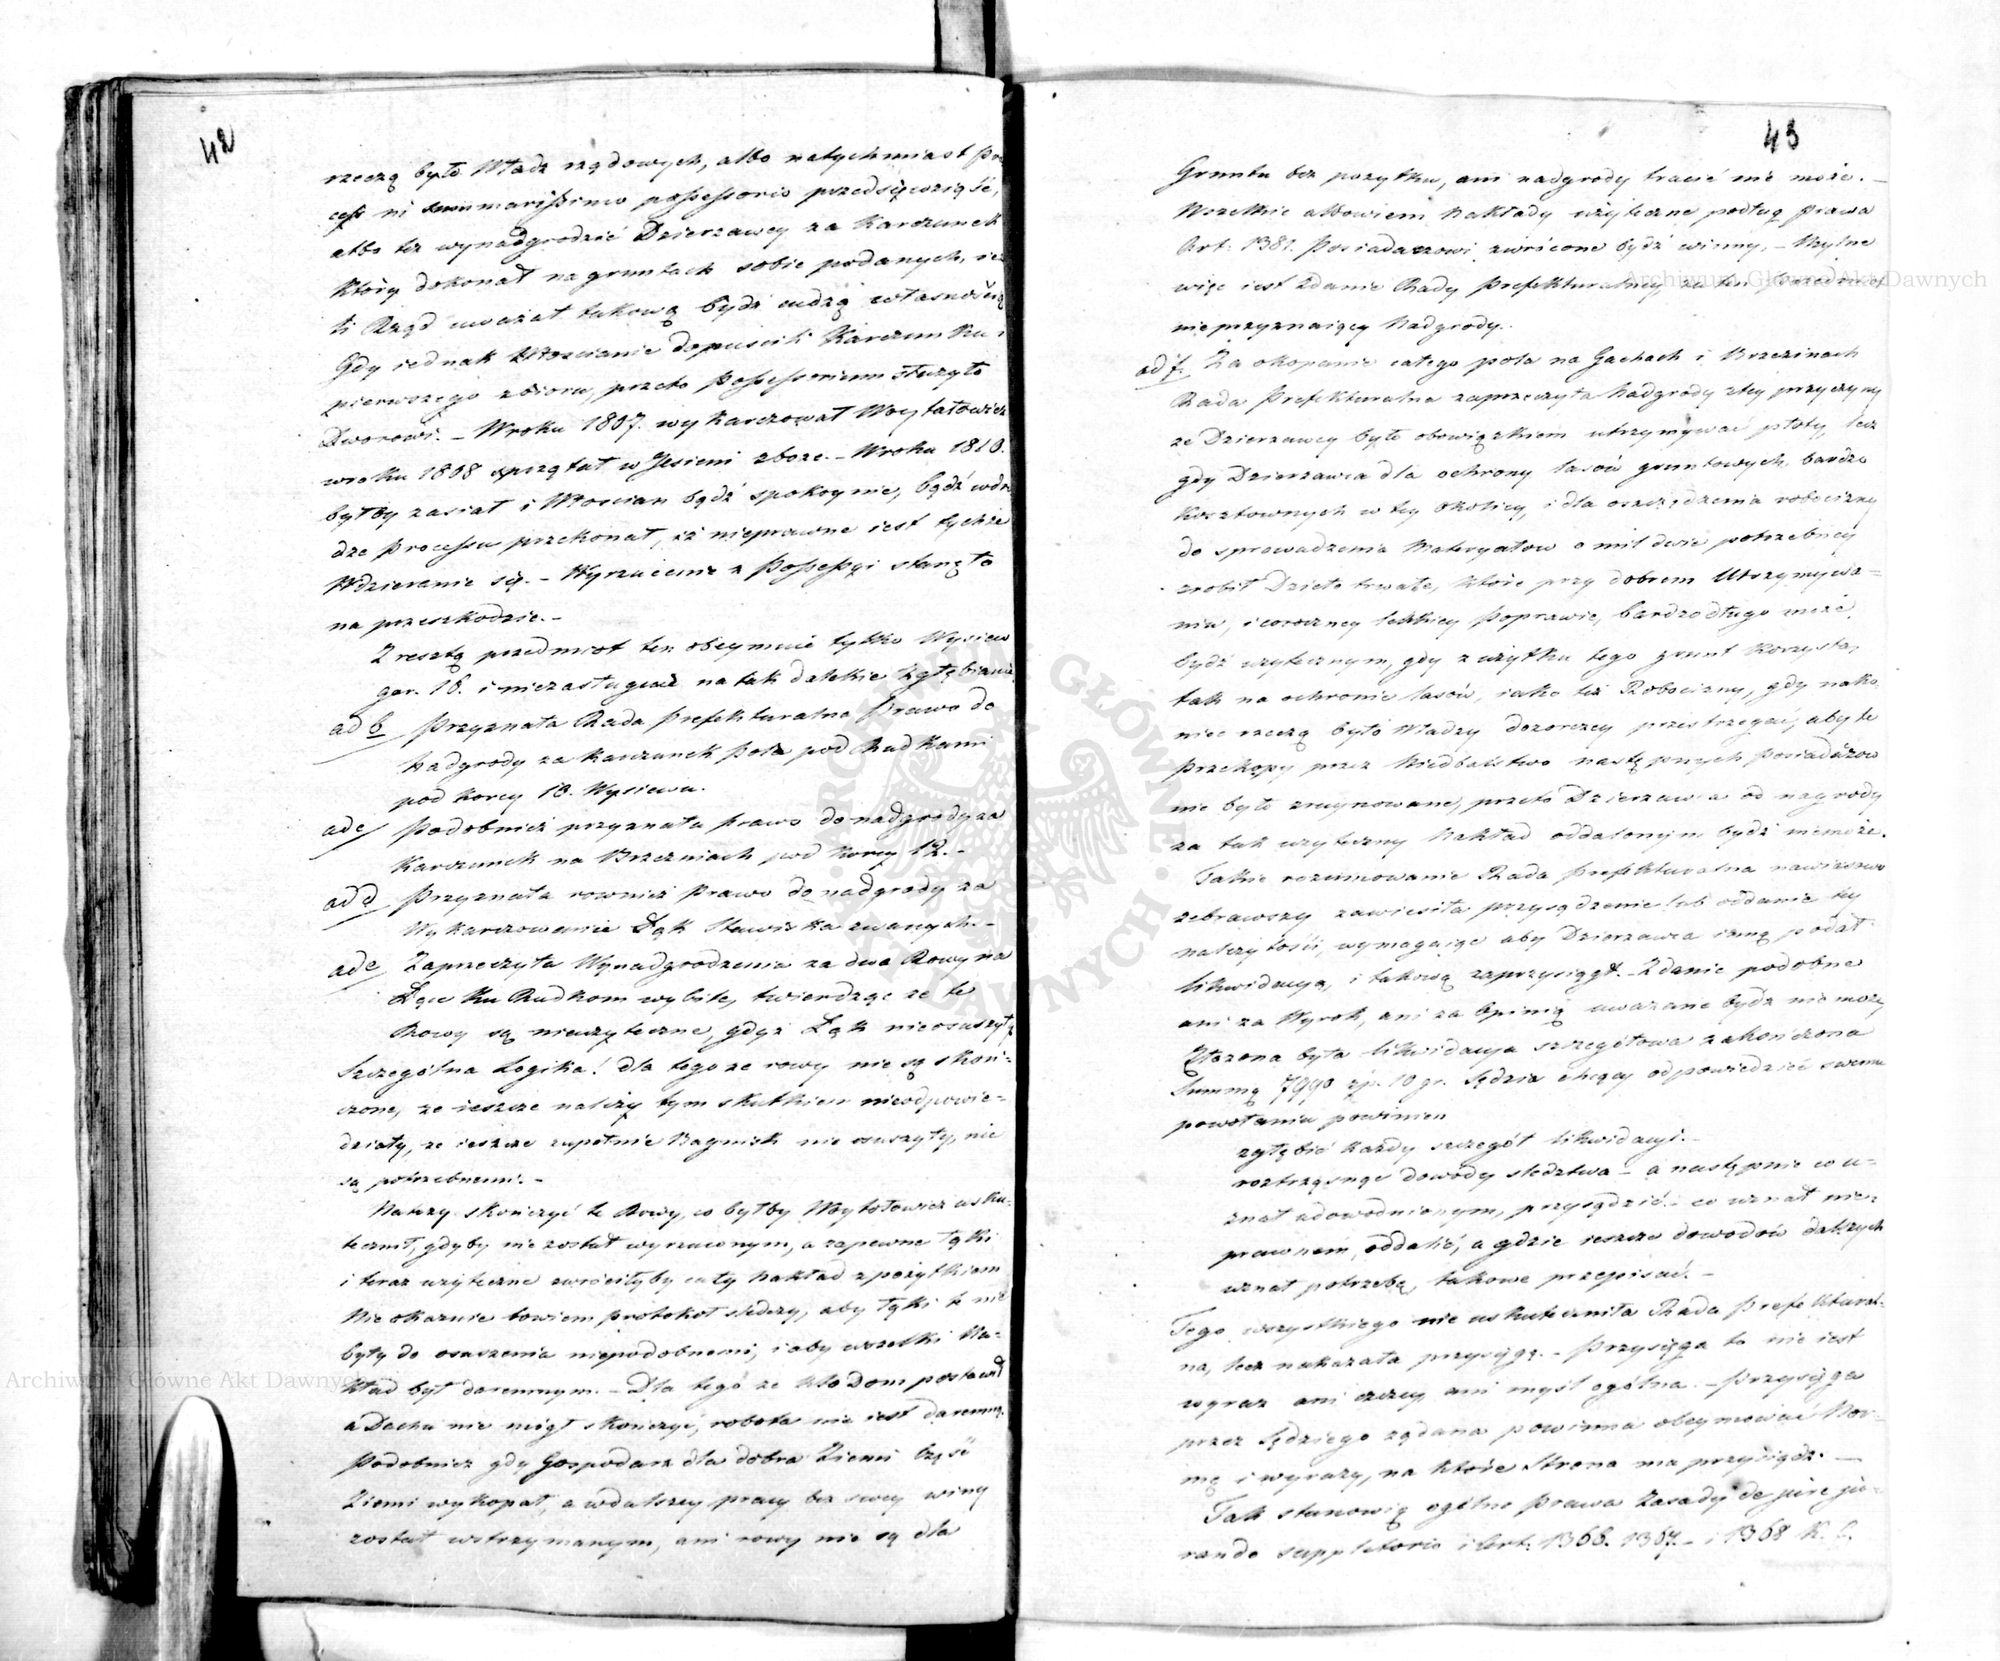 42
rzeczą było Władz rządowych, albo natychmiast pro
cess ni summarissimo possessorio przedsięwziąść,
albo też wynadgrodzić Dzierzawcy za Karczunek
który dokonał na gruntach sobie podanych, ie
li Rząd uważał takową bydź cudzą własnością
Gdy iednak Włoscianie dopuscili Karczunku i
pierwszego zbioru, przeto Possessorium służyło
Dworowi. – W roku 1807. wykarczował Woytałowicz
w roku 1808 sprzątał w Jesieni zboze. – W roku 1810.
byłby zasiał i Włoscian bądź spokoynie, bądź wdro
dze Processu przekonał, iż nieprawne iest tychże
Wdzieranie się. – Wyrzucenie z Possessyi stanęło
na przeszkodzie. –
Z resztą przedmiot ten obeymuie tylko Wysiew
gar. 16. i niezasługuie na tak dalekie Zgłębianie
ad b Przyznała Rada Prefekturalna Prawo do
Nadgrody za Karczunek Pola pod Rudkami
pod korcy 13. Wysiewu.
ad c Podobnież przyznała prawo do nadgrody za
Karczunek na Brzezniach pod korcy 12. –
ad d Przyznała rownież Prawo do nadgrody za
Wykarczowanie Łąk Stawiska zwanych. –
ad e Zaprzeczyła Wynadgrodzenia za dwa Rowy na
Łące ku Rudkom wybite, twierdząc ze te
Rowy są nieuzyteczne, gdyż Łąk nieosuszyły
Szczególna Logika! dla tego ze rowy nie są skoń-
czone, ze ieszcze należy tym skutkiem nieodpowie-
działy, ze ieszcze zupełnie Bagnisk nie osuszyły, nie
są potrzebnemi. –
Należy skończyć te Rowy, co byłby Woytołowicz usku-
tecznił, gdyby nie został wyrzuconym, a zapewne Łąki
i teraz użyteczne zwróciłyby cały Nakład z pożytkiem
Nie okazuie bowiem protokół sledczy, aby Łąki te nie
były do osuszenia niepodobnemi, i aby wszelki Na-
kład był daremnym. – Dla tego ze kto Dom postawił
a Dachu nie mógł skończyć, robota nie iest daremną.
Podobnież gdy Gospodarz dla dobra Ziemi część
Ziemi wykopał, a w dalszey pracy bez swey winy
został wstrzymanym, ani rowy nie są dla
43
Gruntu bez pozytku, ani nadgrody tracić nie może. –
Wszelkie albowiem Nakłady użyteczne podług Prawa
Art. 1381. Posiadaczowi zwrócone bydź winny. – Mylne
więc iest zdanie Rady Prefekturalney za ten Przedmiot
nieprzyznaiący Nadgrody.
ad f. Za okopanie całego pola na Gachach i Brzezinach
Rada Prefekturalna zaprzeczyła Nadgrody z tey przyczyny
ze Dzierzawcy było obowiązkiem utrzymywać płoty, lecz
gdy Dzierzawca dla ochrony lasów gruntowych, bardzo
kosztownych w tey okolicy, i dla oszczędzenia robocizny
do sprowadzenia Materyałow o mil dwie potrzebney
zrobił Dzieło trwałe, które przy dobrem Utrzymywa-
niu, i coroczney lekkiey Poprawie, bardzo długo może
bydź uzytecznym, gdy z użytku tego grunt korzysta,
tak na ochronie lasów, iako też Robocizny, gdy nako
niec rzeczą było Władzy dozorczey przestrzegać, aby te
Przekopy przez Niedbalstwo następnych Posiadaczow
nie było zruynowane, przeto Dzierzawca od nagrody
za tak użyteczny Nakład oddalonym bydź niemoże.
Takie rozumowanie Rada Prefekturalna nawiasowo
zebrawszy zawiesiła przysądzenie lub oddanie tey
należytości, wymagaiąc aby Dzierzawca inną podał
likwidacyą, i takową zaprzysiągł. – Zdanie podobne
ani za Wyrok, ani za Opinią uważane bydź nie może,
Złozona była likwidacya szczegółowa zakończona
Summą 7990 zp. 10 gr. Sędzia chcący odpowiedzieć swemu
powołaniu powinien
zgłębić każdy szczegół likwidacyi. –
roztrząsnąć dowody sledztwa – a następnie co u-
znał udowodnionym, przysądzić – co uznał nie-
prawnem, oddalić, a gdzie ieszcze dowodów dalszych
uznał potrzebę, takowe przepisać. –
Tego wszystkiego nie uskuteczniła Rada Prefektural-
na, lecz nakazała przysięgę. – Przysięga to nie iest
wyraz ani rzeczy, ani myśl ogólna. – Przysięga
przez Sędziego żądana powinna obeymować Nor-
mę i wyrazy, na które Strona ma przysiądz. –
Tak stanowią ogólne Prawa Zasady de jure ju-
rando suppletorio i Art. 1366. 1367. – i 1368 K. C.
Archiwum Główne Akt Dawnych
Archiwum Główne Akt Dawnych
ARCHIWUM GŁÓWNE AKT DAWNYCH